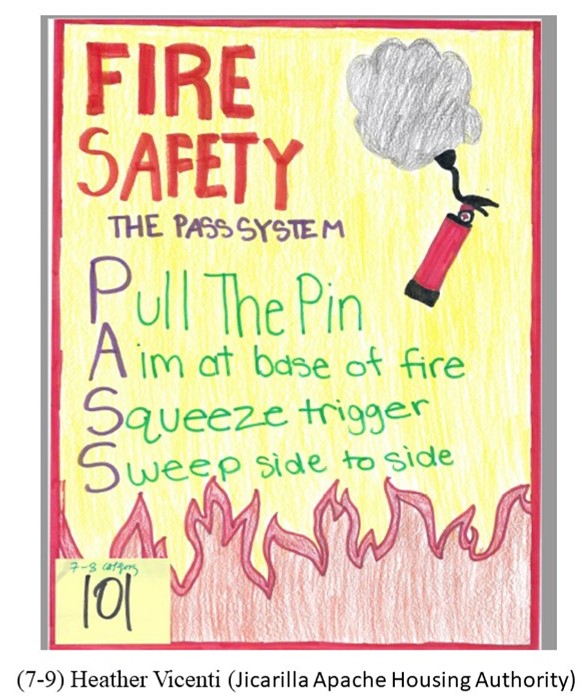 FIRE
SAFETY
THE PASS SYSTEM
Pull The Pin
Aim at base of fire
Squeeze trigger
Sweep side to side
101
(7-9) Heather Vicenti (Jicarilla Apache Housing Authority)